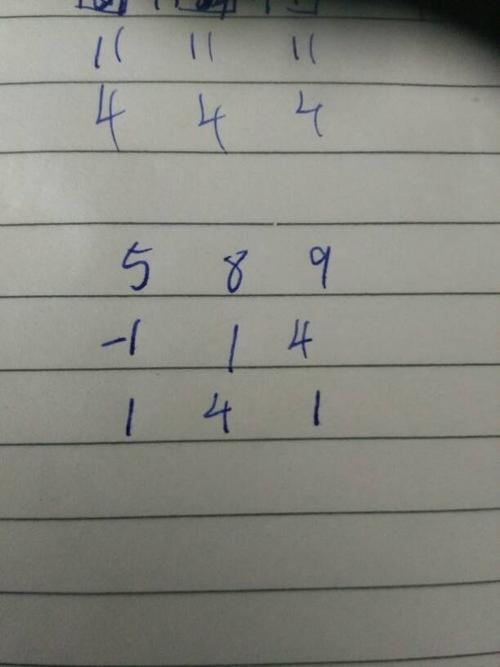 11 11 11
4 4 4
5 8 9
-1 1 4
1 4 1